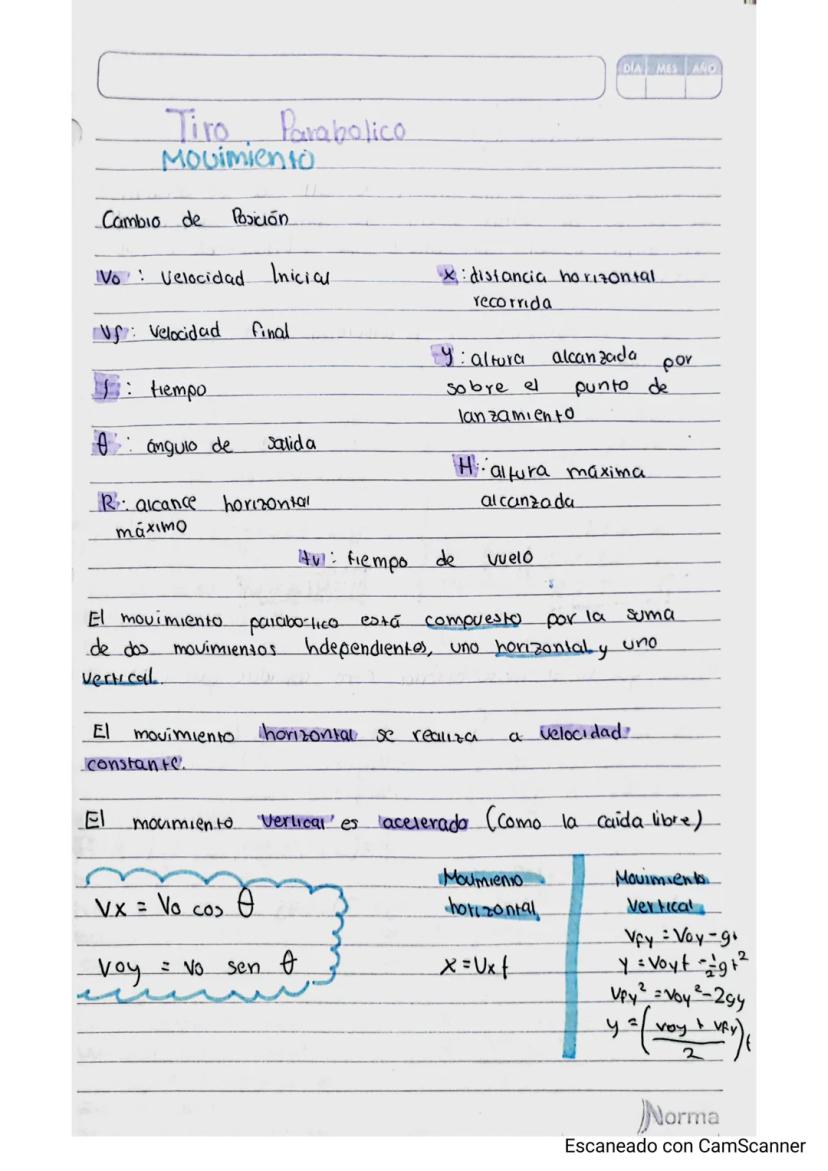 DÍA MES AÑO
Tiro Parabolico
Movimiento
Cambio de Posición
Vo : Velocidad Inicial
x : distancia horizontal
recorrida
Vf : Velocidad final
y : altura alcanzada por
sobre el punto de
lanzamiento
t : tiempo
θ : ángulo de salida
H : altura máxima
alcanzada
R : alcance horizontal
máximo
tv : tiempo de vuelo
El movimiento parabo-lico está compuesto por la suma
de dos movimientos Independientes, uno horizontal y uno
vertical.
El movimiento horizontal se realiza a velocidad
constante.
El movimiento vertical es acelerado (Como la caída libre)
Vx = Vo cos θ
Voy = Vo sen θ
Movimiento
horizontal
x = Vx t
Movimiento
vertical
Vfy = Voy - gt
y = Voy t - ½ g t²
Vfy² = Voy² - 2gy
y = (voy + vfy / 2) t
Norma
Escaneado con CamScanner